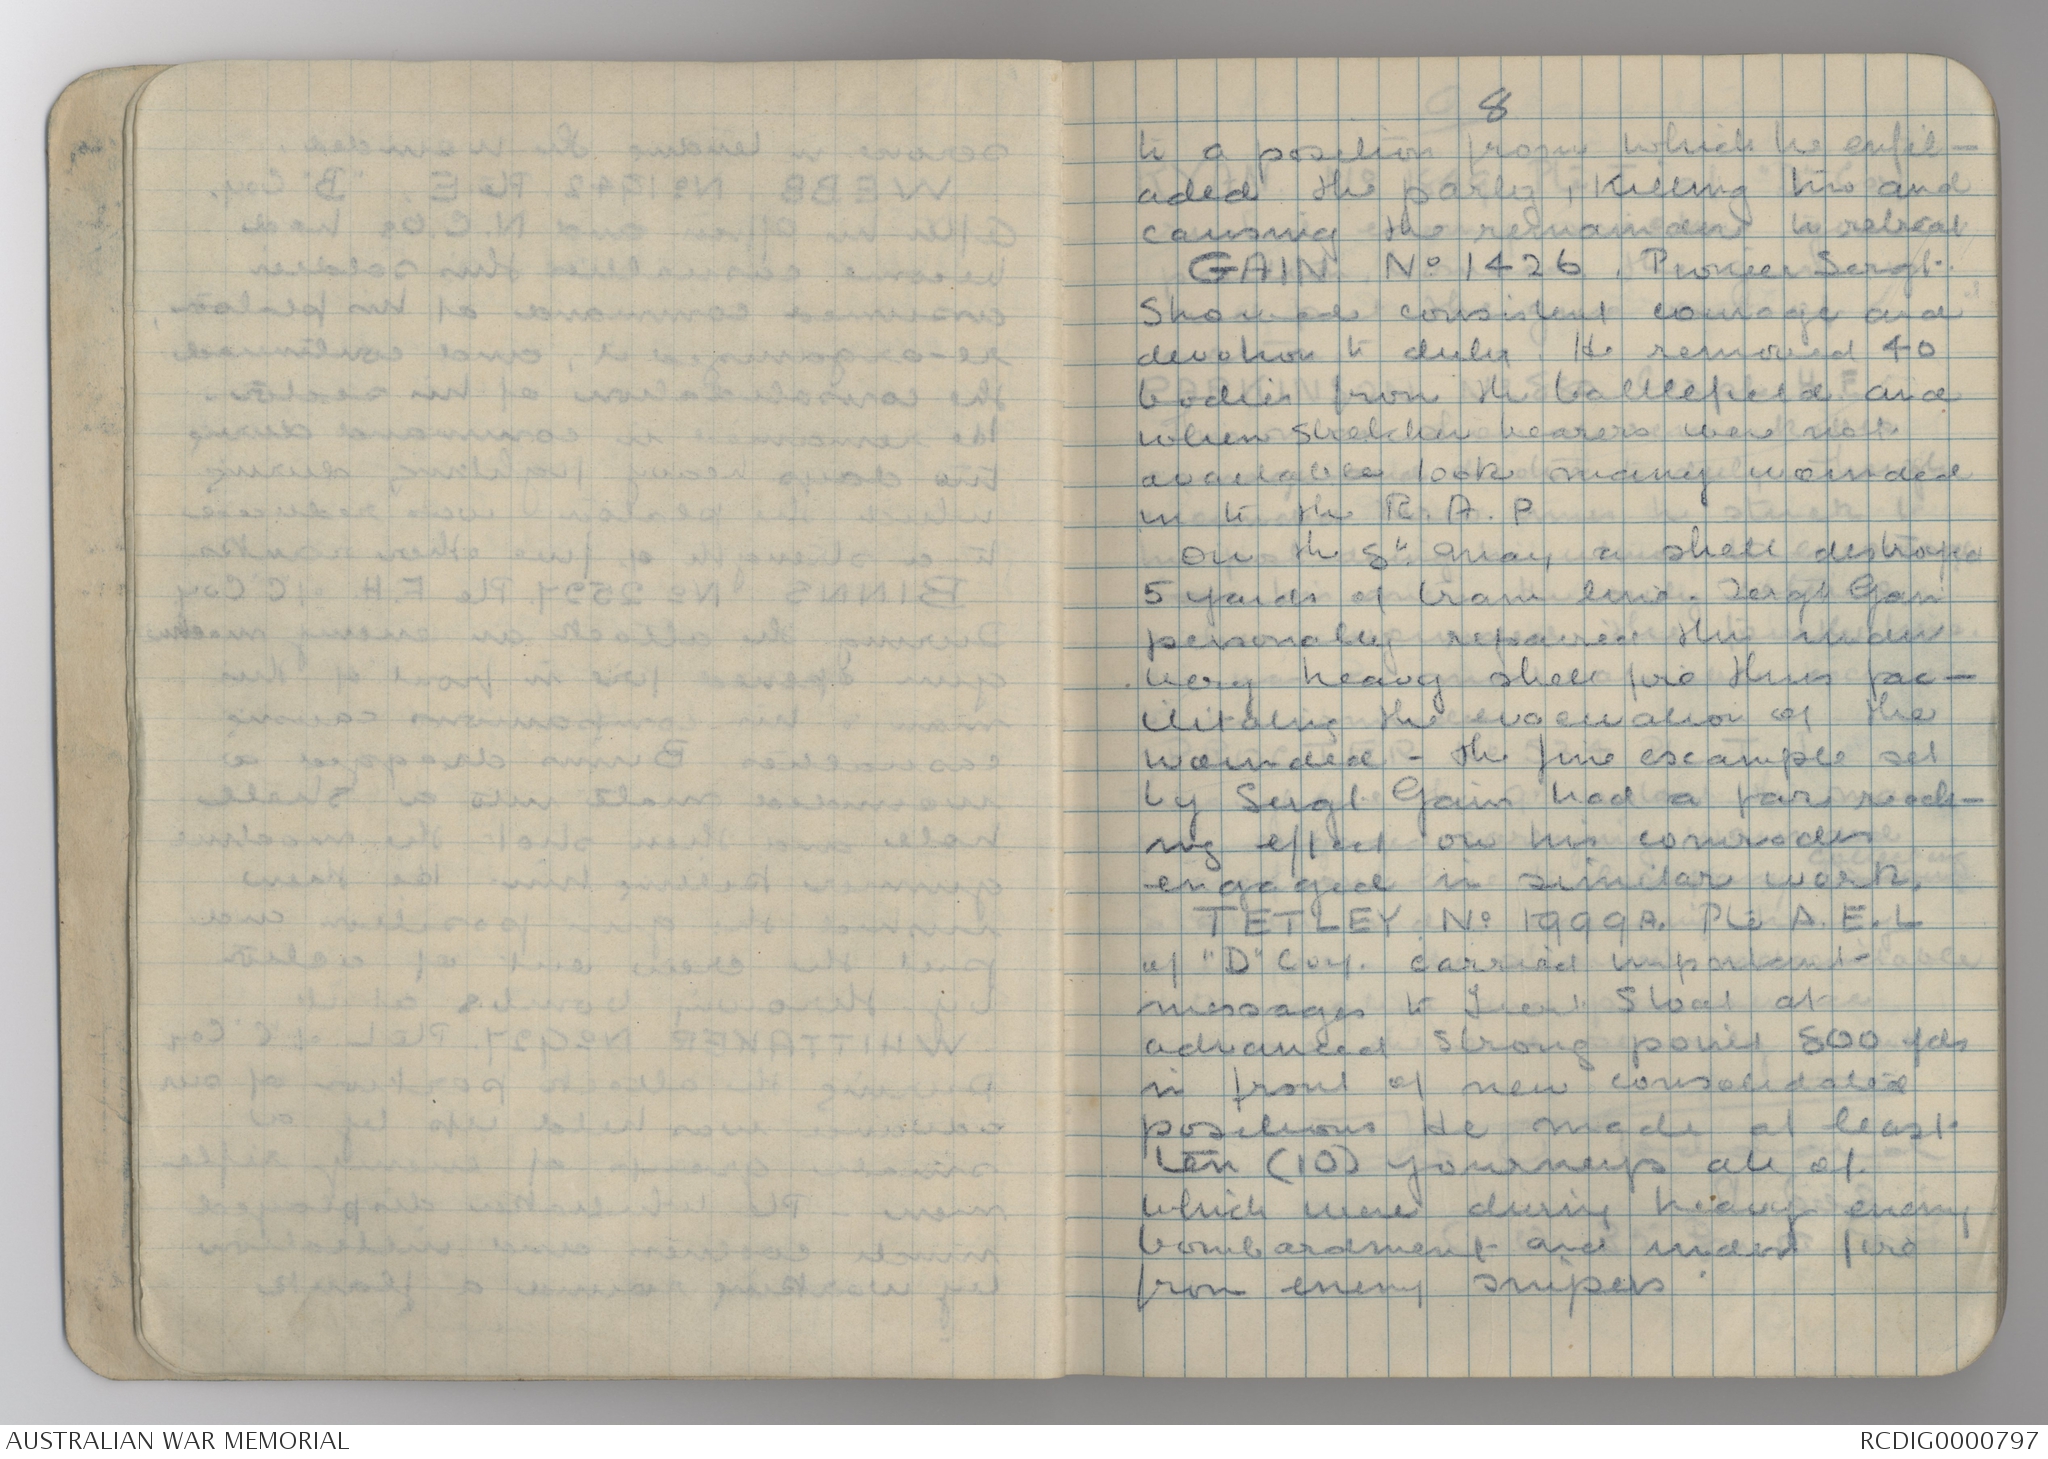 8
to a position from which he enfil-
aded the party, killing two and
causing the remainder to retreat
GAIN No 1426. Pioneer Sergt.
Showed consistent courage and
devotion to duty. He removed 40
bodies from the battlefield and
when stretcher bearers were not
available took many wounded
in to the R.A.P.
On the 8th May, a shell destroyed
5 yards of tram line. Sergt Gain
personally repaired this under
very heavy shell fire thus fac-
ilitating the evacuation of the
wounded - the fine example set
by Sergt Gain had a far reach-
ing effect on his comrades
engaged in similar work.
TETLEY No 1999A. Pte A.E.L
of "D" Coy. carried important
messages to Lieut Stoat at
advanced strong point 800 yds
in front of new consolidated
positions He made at least
ten (10) yourneys all of
which were during heavy enemy
bombardment and under fire
from enemy snipers.
AUSTRALIAN WAR MEMORIAL
RCDIG0000797